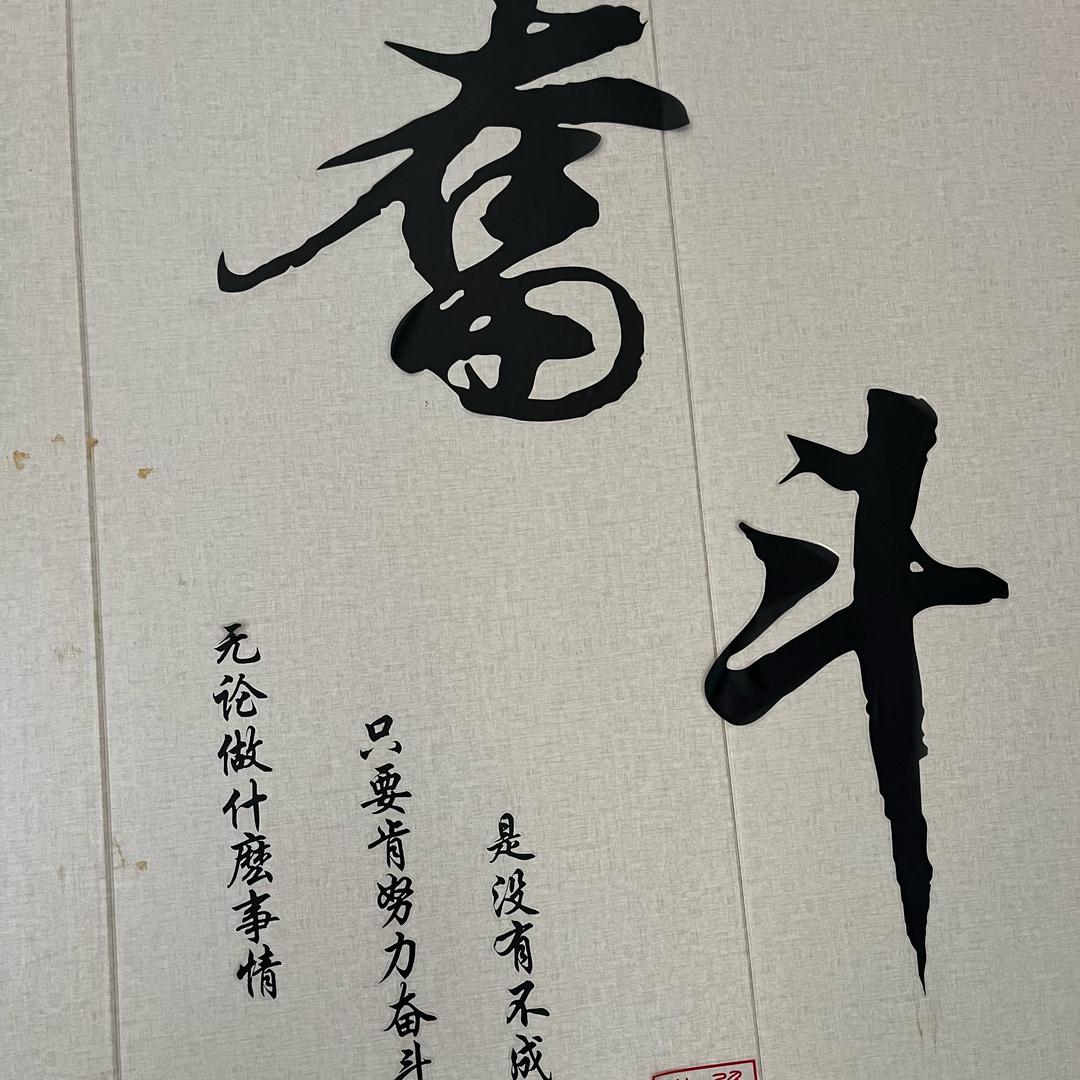 奮斗
无论做什麽事情
只要肯努力奋斗
是没有不成